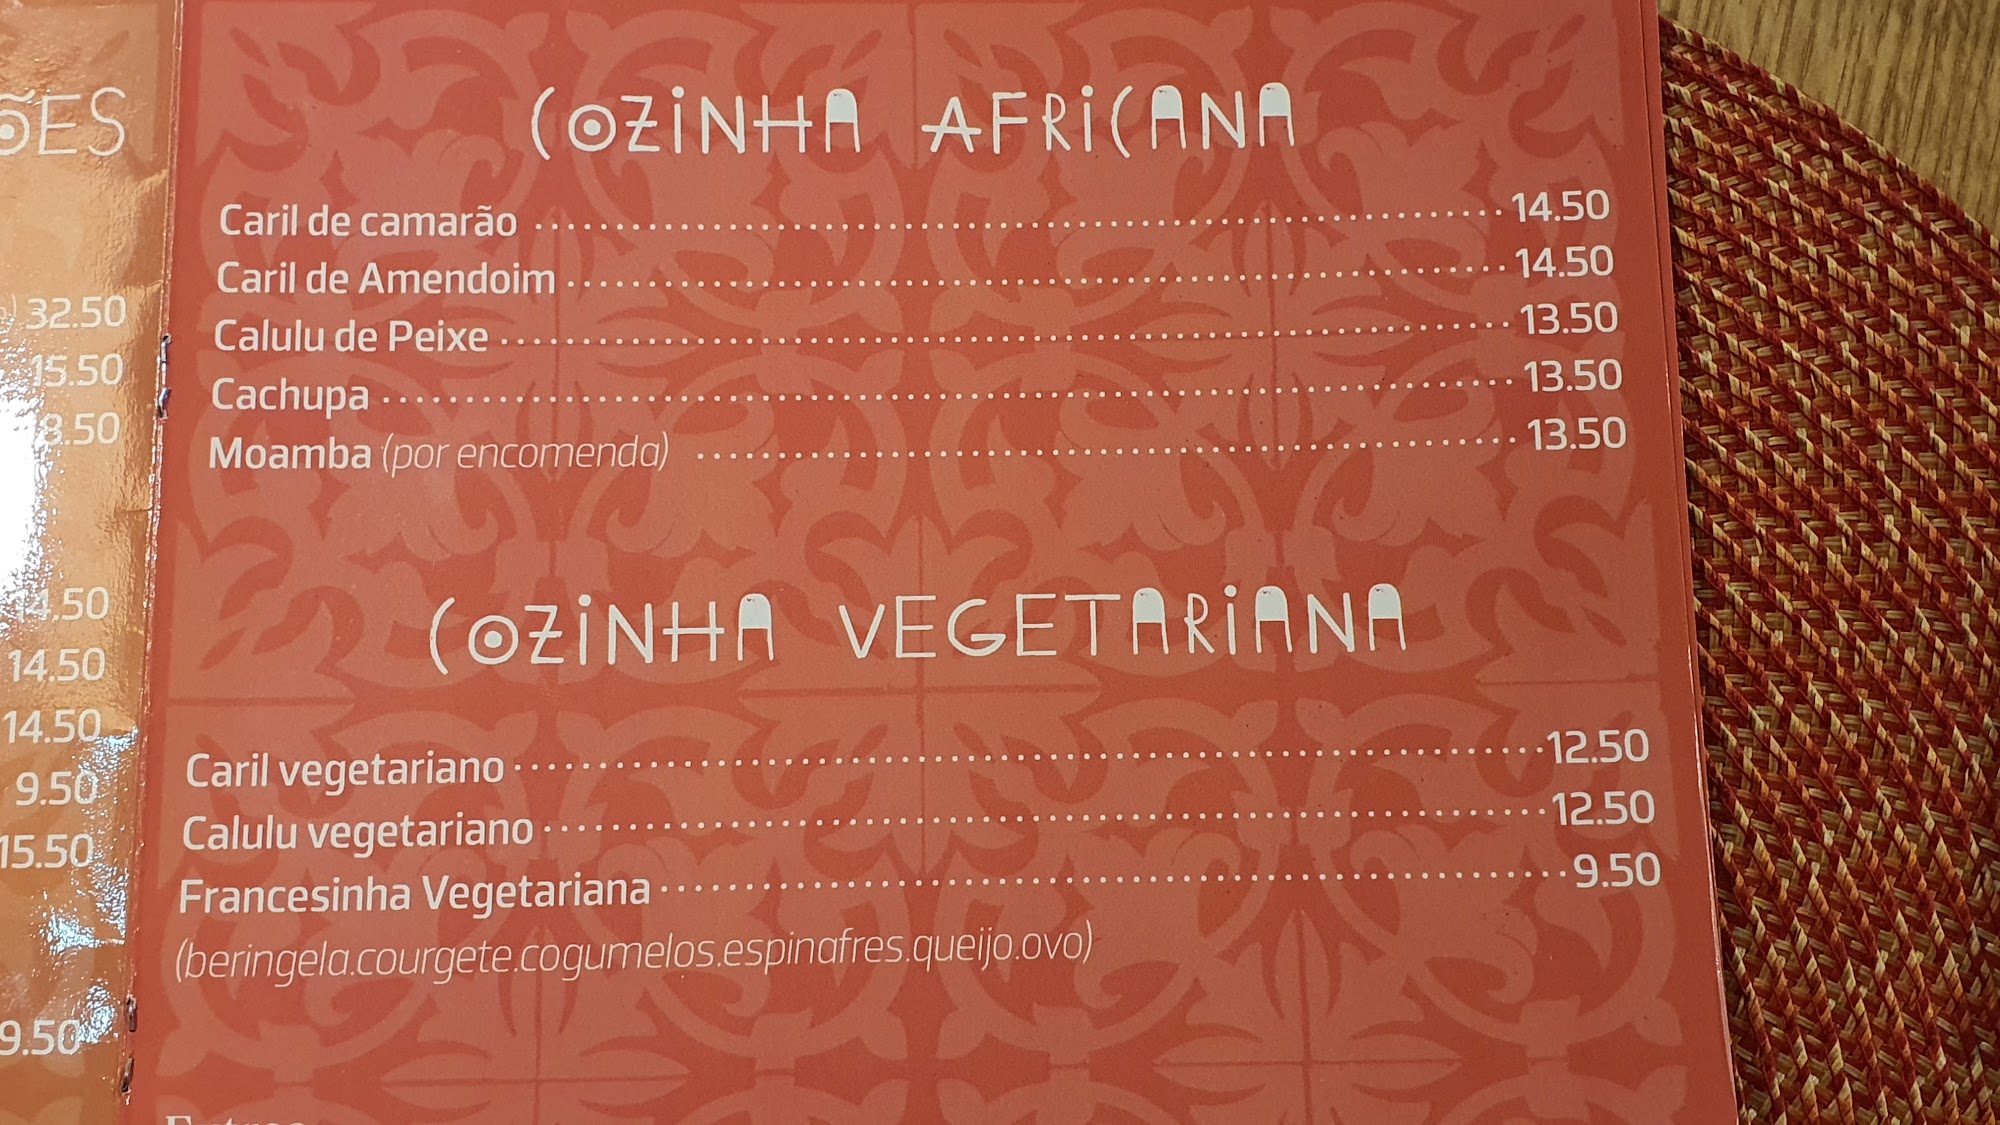 ÕES
32.50
15.50
3.50
4.50
14.50
14.50
9.50
15.50
9.50
COZINHA AFRICANA
Caril de camarão 14.50
Caril de Amendoim 14.50
Calulu de Peixe 13.50
Cachupa 13.50
Moamba (por encomenda) 13.50
COZINHA VEGETARIANA
Caril vegetariano 12.50
Calulu vegetariano 12.50
Francesinha Vegetariana 9.50
(beringela.courgete.cogumelos.espinafres.queijo.ovo)